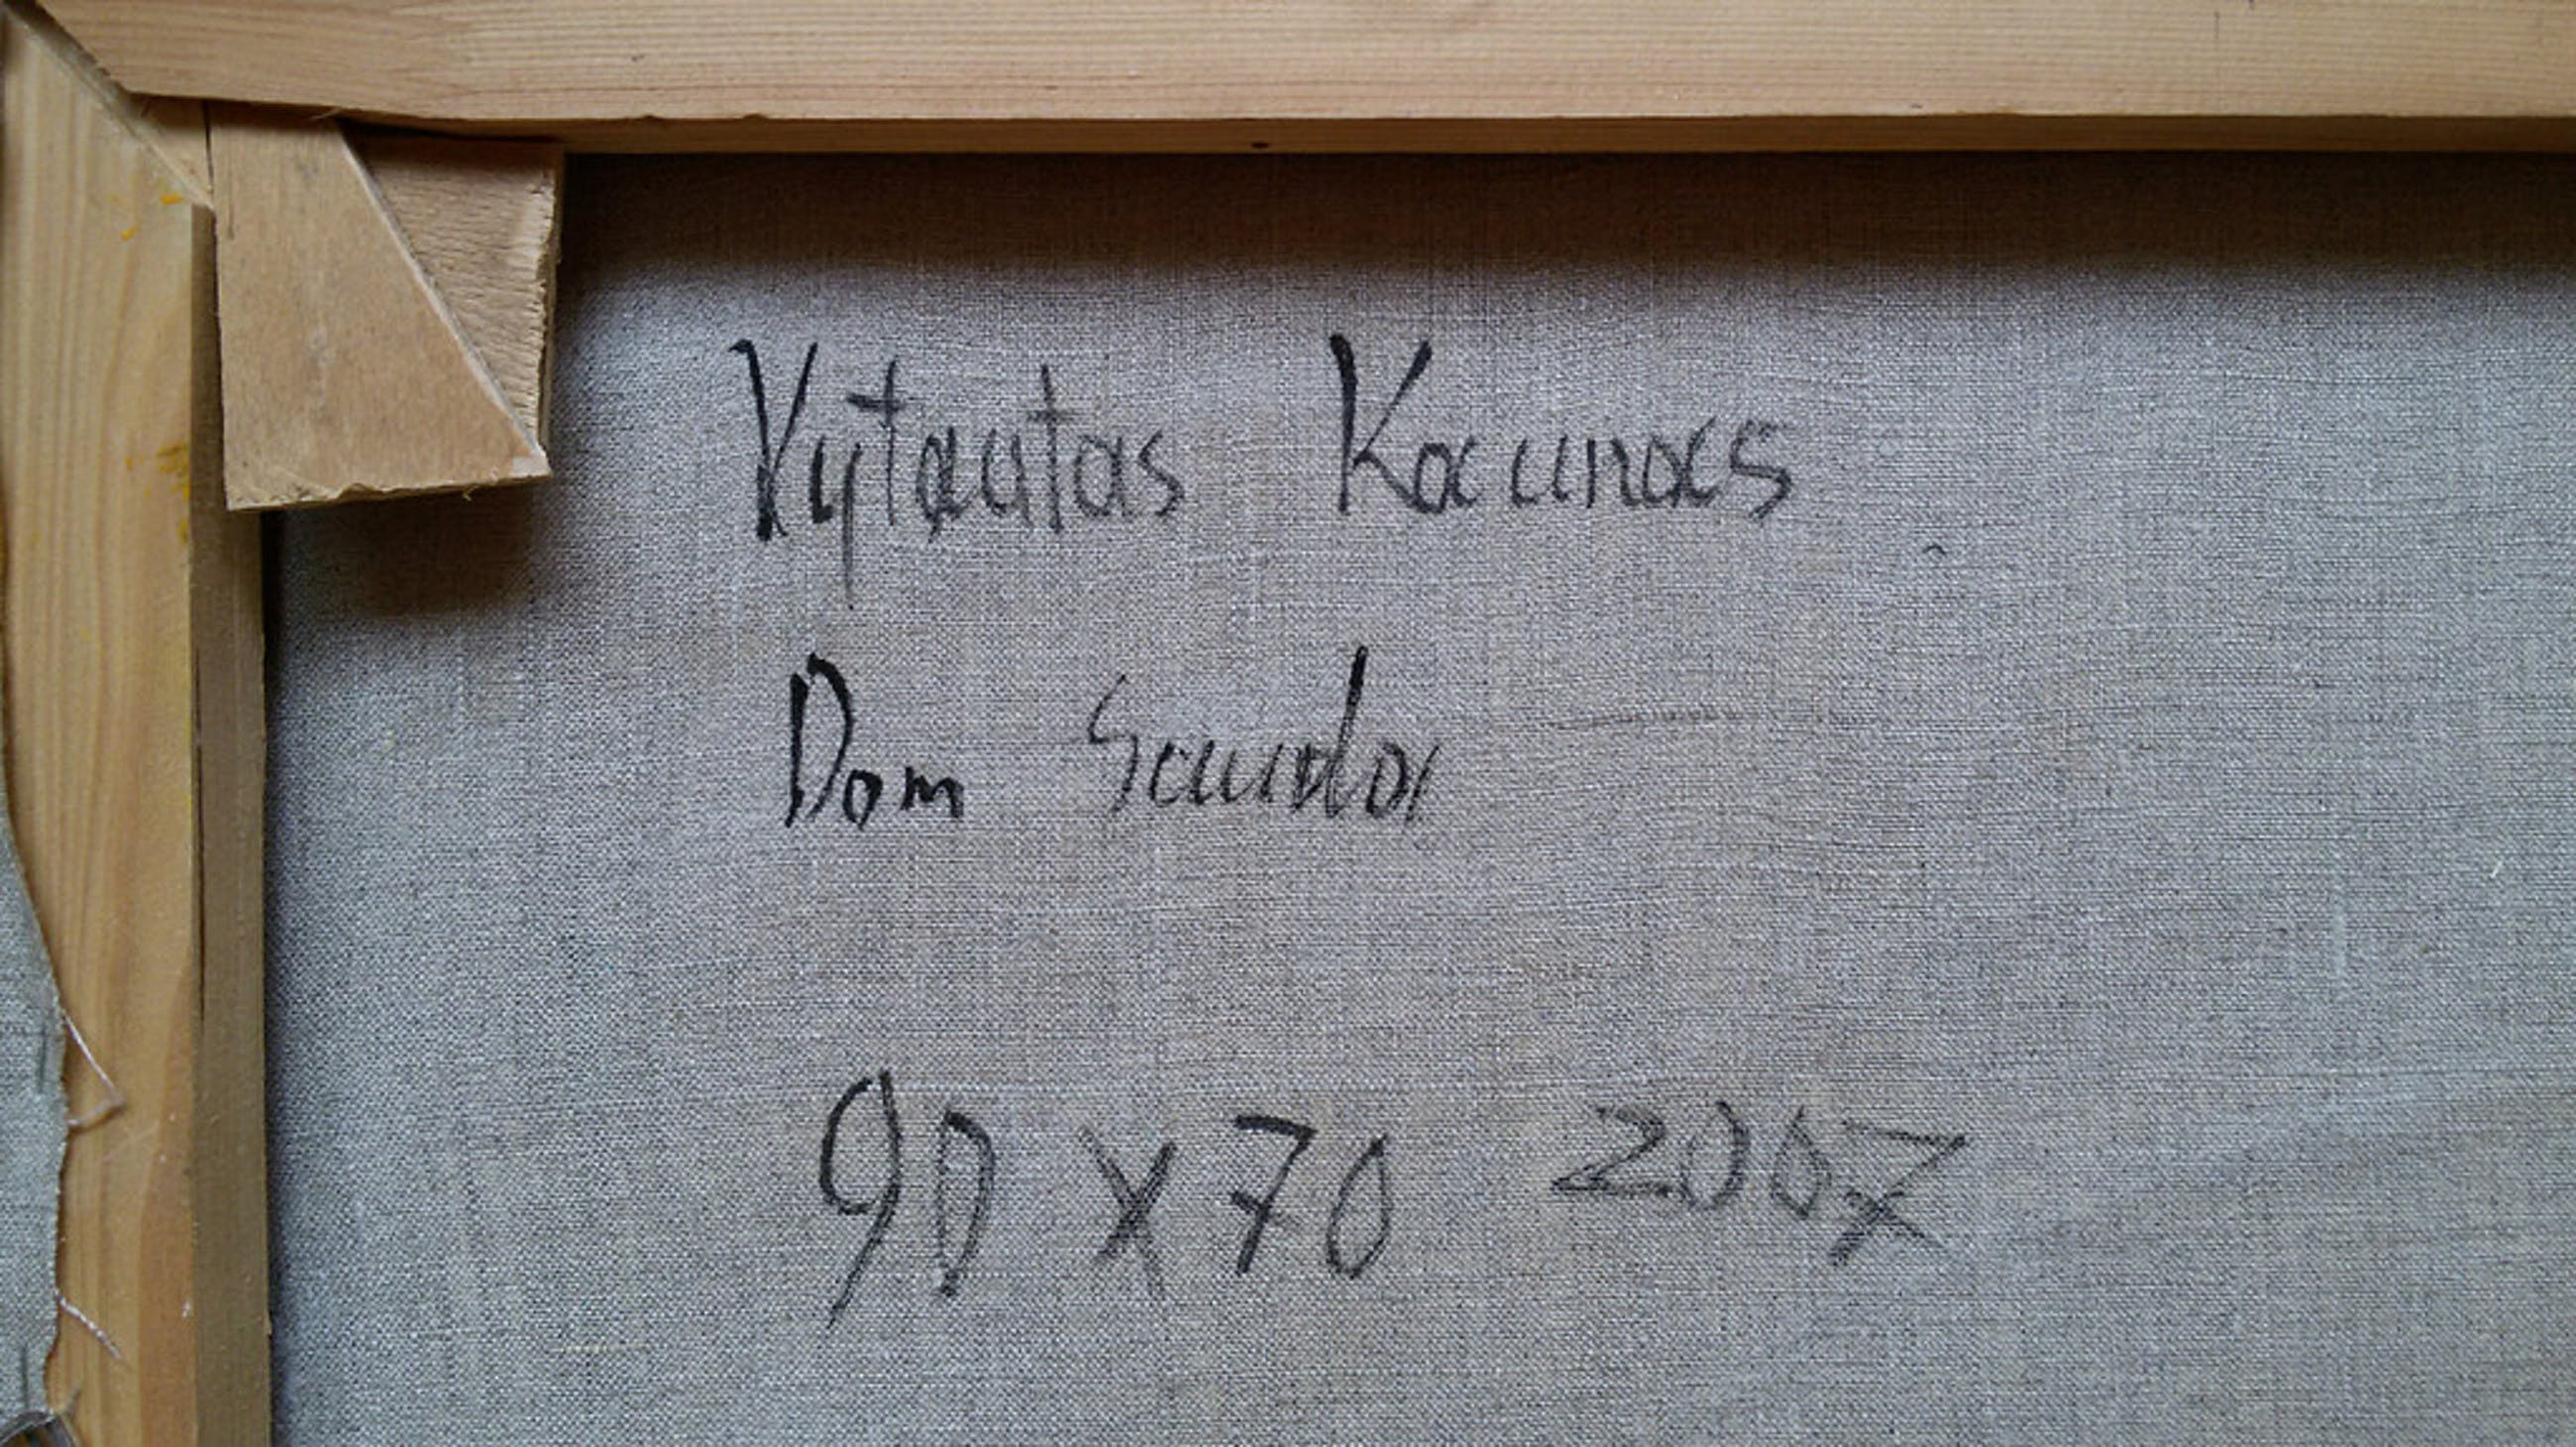 Vytautas Kaunas
Dom
90 x 70 2007